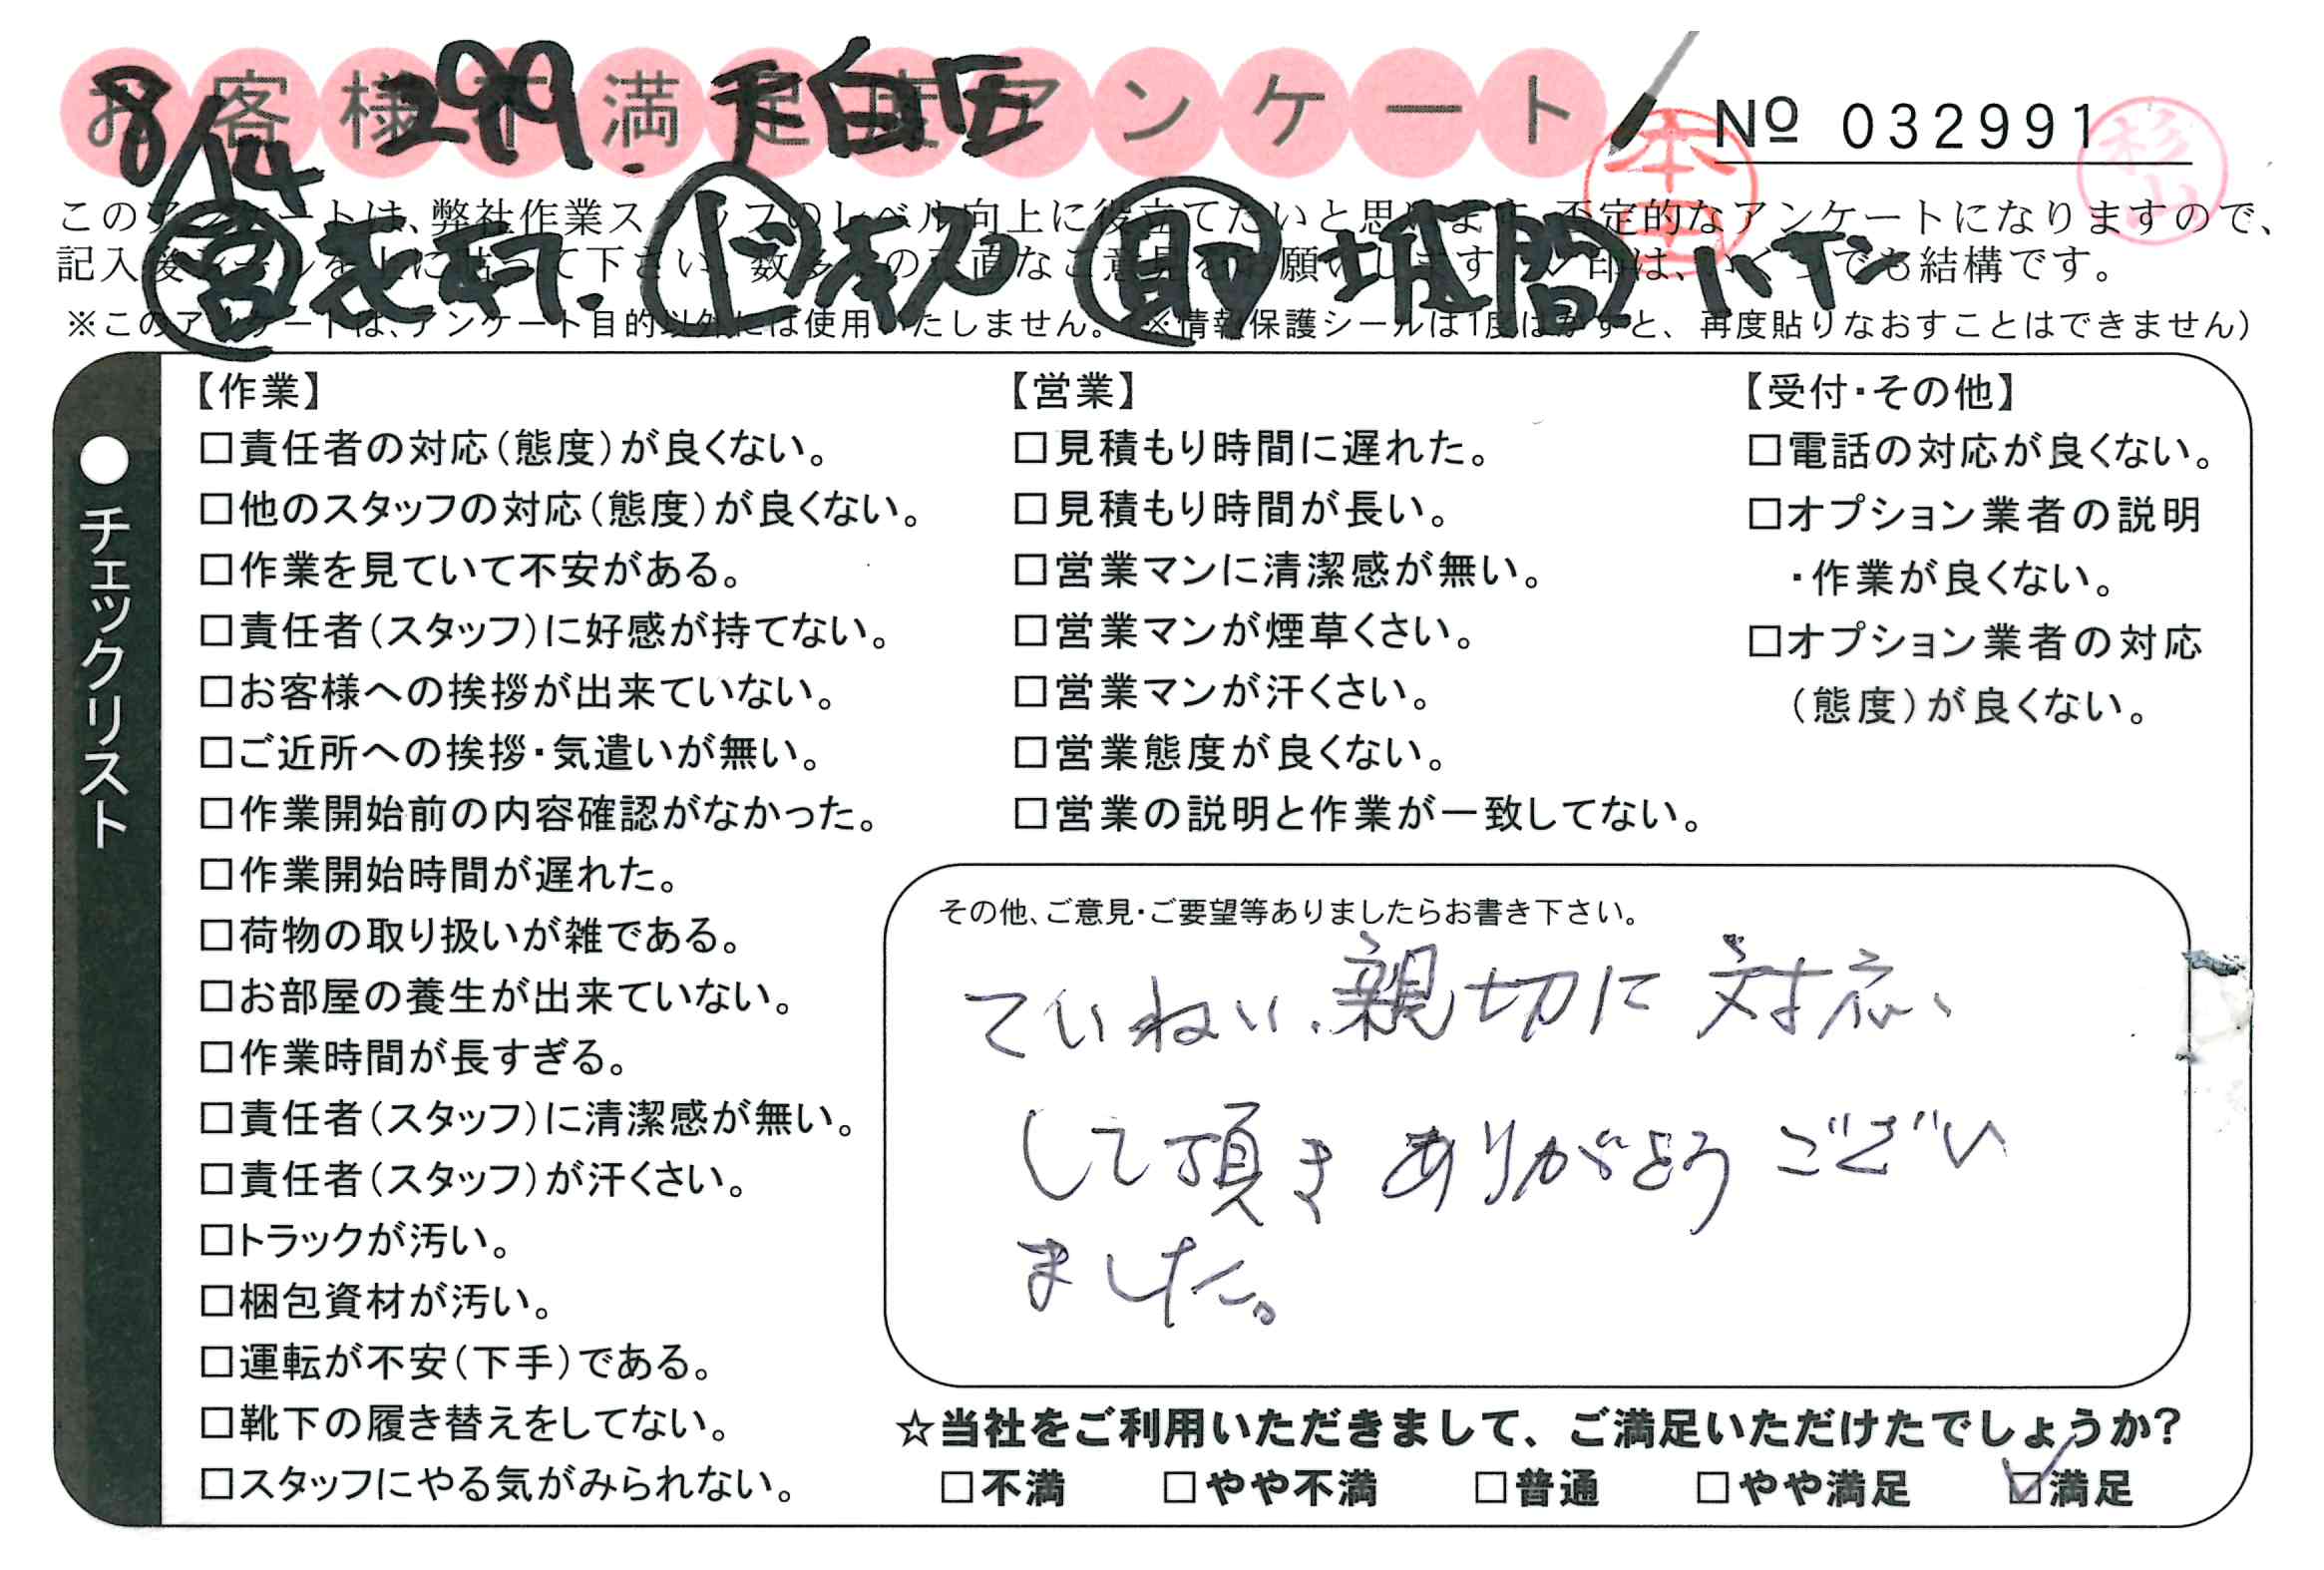 お客様不満足度アンケート
8/14 299. 天白区
No 032991
本田
杉山
このアンケートは、弊社作業スタッフのレベル向上に役立てたいと思います。不定的なアンケートになりますので、
記入後シールを上に貼って下さい。数多くの正直なご意見をお願いします。レ印は、いくつでも結構です。
※このアンケートは、アンケート目的以外には使用いたしません。(※情報保護シールは1度はがすと、再度貼りなおすことはできません)
営 L 取
●チェックリスト
【作業】
□責任者の対応(態度)が良くない。
□他のスタッフの対応(態度)が良くない。
□作業を見ていて不安がある。
□責任者(スタッフ)に好感が持てない。
□お客様への挨拶が出来ていない。
□ご近所への挨拶・気遣いが無い。
□作業開始前の内容確認がなかった。
□作業開始時間が遅れた。
□荷物の取り扱いが雑である。
□お部屋の養生が出来ていない。
□作業時間が長すぎる。
□責任者(スタッフ)に清潔感が無い。
□責任者(スタッフ)が汗くさい。
□トラックが汚い。
□梱包資材が汚い。
□運転が不安(下手)である。
□靴下の履き替えをしてない。
□スタッフにやる気がみられない。
【営業】
□見積もり時間に遅れた。
□見積もり時間が長い。
□営業マンに清潔感が無い。
□営業マンが煙草くさい。
□営業マンが汗くさい。
□営業態度が良くない。
□営業の説明と作業が一致してない。
【受付・その他】
□電話の対応が良くない。
□オプション業者の説明
・作業が良くない。
□オプション業者の対応
(態度)が良くない。
その他、ご意見・ご要望等ありましたらお書き下さい。
ていねい、親切に対応、
して頂きありがとうござい
ました。
☆当社をご利用いただきまして、ご満足いただけたでしょうか?
□不満 □やや不満 □普通 □やや満足 ☑満足